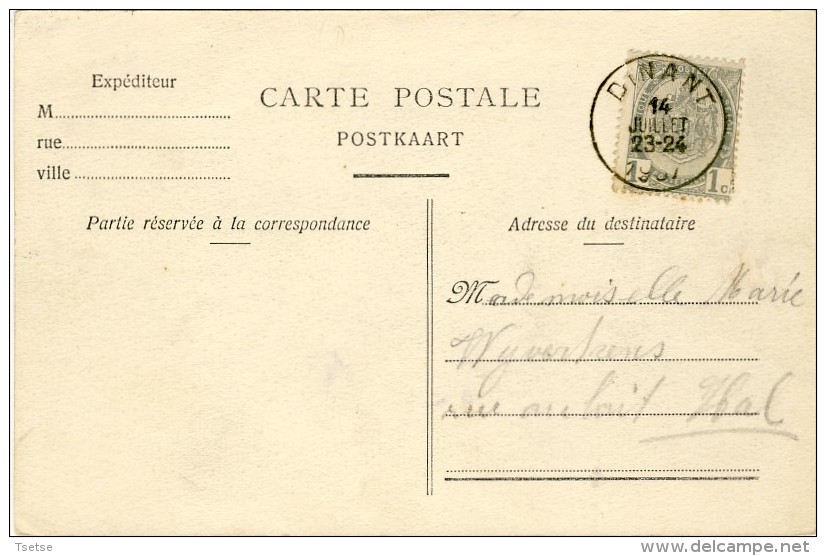 Expéditeur
M
rue
ville
CARTE POSTALE
POSTKAART
DINANT
14
JUILLET
23-24
1907
1 1 c.
Partie réservée à la correspondance
Adresse du destinataire
Mademoiselle Marie
Wyverkens
rue au lait Hal
Tsetse
delcampe.net